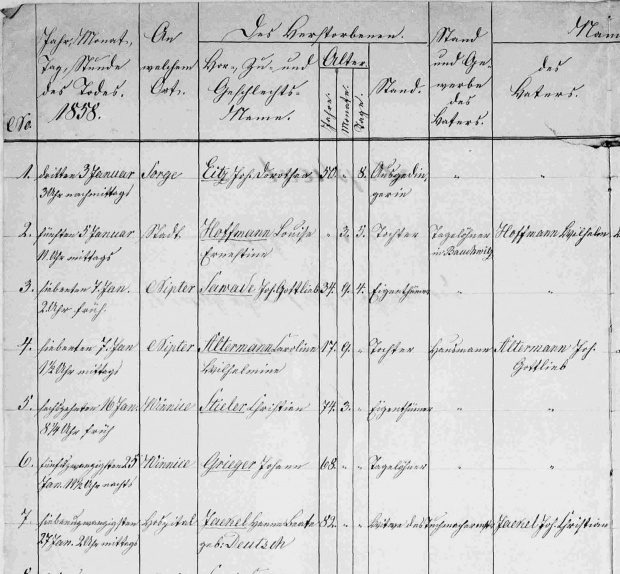 Des Verstorbenen.
Stand
Nam
Jahr, Monat,
An
Tag, Stunde
welchem
Vor-, Zu- und
Alter.
und Ge-
des
des Todes.
Ort.
Geschlechts-
Stand.
werbe
Vaters.
1858.
Name.
Jahre.
Monate.
Tage.
des
No.
Vaters.
1. dritten 3 Januar Sorge Eitz Joh. Dorothea 50 " 8. Ausgedin- " "
3 Uhr nachmittags gerin
2. fünften 5 Januar Stadt. Hoffmann Louise " 3. 5. Tochter Tagelöhner Hoffmann Wilhelm
11 Uhr mittags Ernestine in
3. siebenten 7 Jan. Nipter Sawade Joh. Gottlieb 34. 9. 4. Eigenthümer " "
2 Uhr früh.
4. siebenten 7. Jan Nipter Altermann Caroline 17. 9. " Tochter Hausmann Altermann Joh.
1½ Uhr mittags Wilhelmine Gottlieb
5. sechszehnten 16 Jan. Winnice Stieler Christian 74. 3. " Eigenthümer " "
8¼ Uhr früh
6. fünfundzwanzigsten 25 Winnice Grieger Johann 68. " " Tagelöhner " "
Jan. 11½ Uhr nachts
7 siebenundzwanzigsten Hospital Jaekel Hanne Beate 82. " " Witwe des Tuchmachermstr Jaekel Joh. Christian
27 Jan. 2 Uhr mittags geb: Deutsch